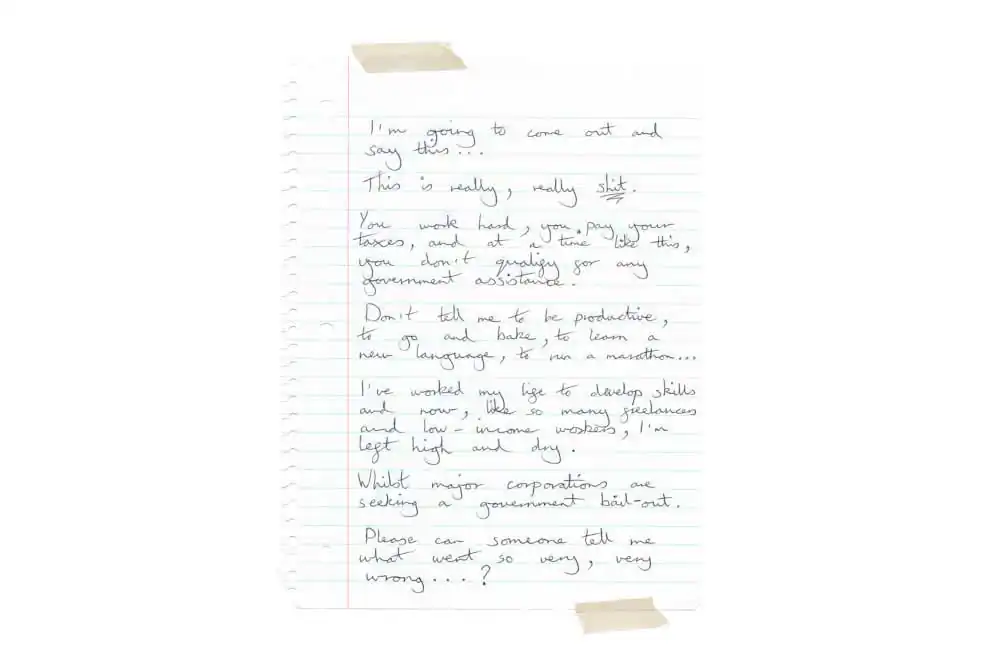 I'm going to come out and
say this...
This is really, really shit.
You work hard, you pay your
taxes, and at a time like this,
you don't qualify for any
government assistance.
Don't tell me to be productive,
to go and bake, to learn a
new language, to run a marathon...
I've worked my life to develop skills
and now, like so many freelancers
and low-income workers, I'm
left high and dry.
Whilst major corporations are
seeking a government bail-out.
Please can someone tell me
what went so very, very
wrong....?